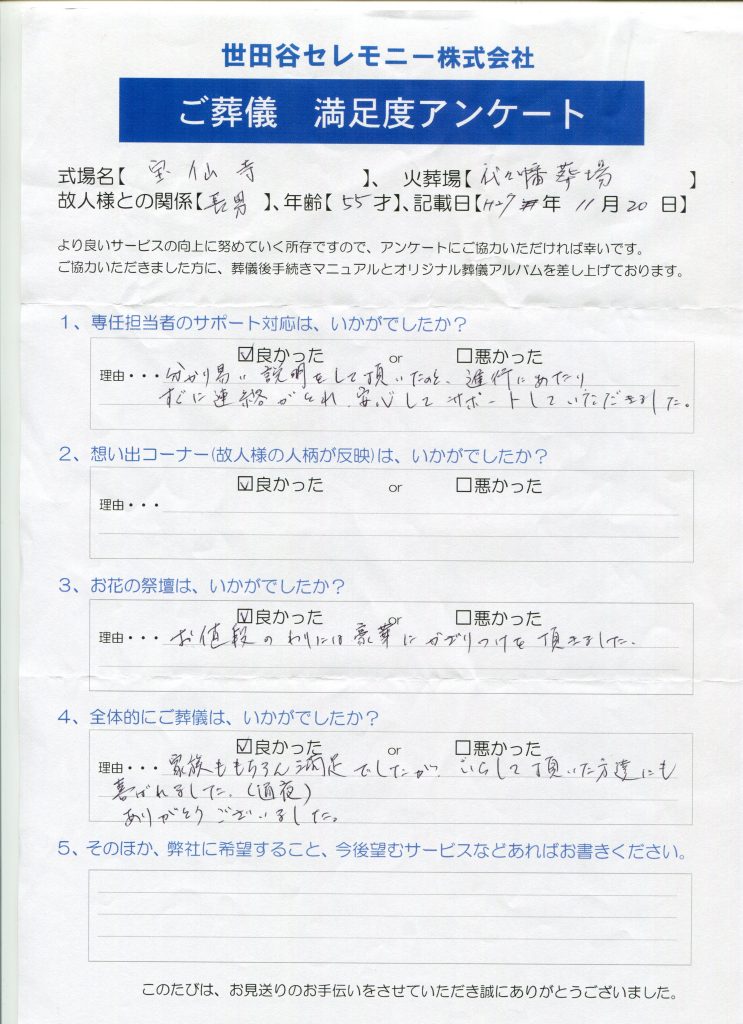 世田谷セレモニー株式会社
ご葬儀 満足度アンケート
式場名【 宝仙寺 】、 火葬場【 代々幡葬場 】
故人様との関係【長男】、年齢【55才】、記載日【H27年 11月 20日】
より良いサービスの向上に努めていく所存ですので、アンケートにご協力いただければ幸いです。
ご協力いただきました方に、葬儀後手続きマニュアルとオリジナル葬儀アルバムを差し上げております。
1、専任担当者のサポート対応は、いかがでしたか？
☑良かった or □悪かった
理由・・・ 分かり易い説明をして頂いたのと、進行にあたり
すぐに連絡がとれ、安心してサポートしていただきました。
2、想い出コーナー(故人様の人柄が反映)は、いかがでしたか？
☑良かった or □悪かった
理由・・・
3、お花の祭壇は、いかがでしたか？
☑良かった or □悪かった
理由・・・ お値段のわりには豪華にかざりつけを頂きました。
4、全体的にご葬儀は、いかがでしたか？
☑良かった or □悪かった
理由・・・ 家族ももちろん満足でしたが、いらして頂いた方達にも
喜ばれました。(通夜)
ありがとうございました。
5、そのほか、弊社に希望すること、今後望むサービスなどあればお書きください。
このたびは、お見送りのお手伝いをさせていただき誠にありがとうございました。